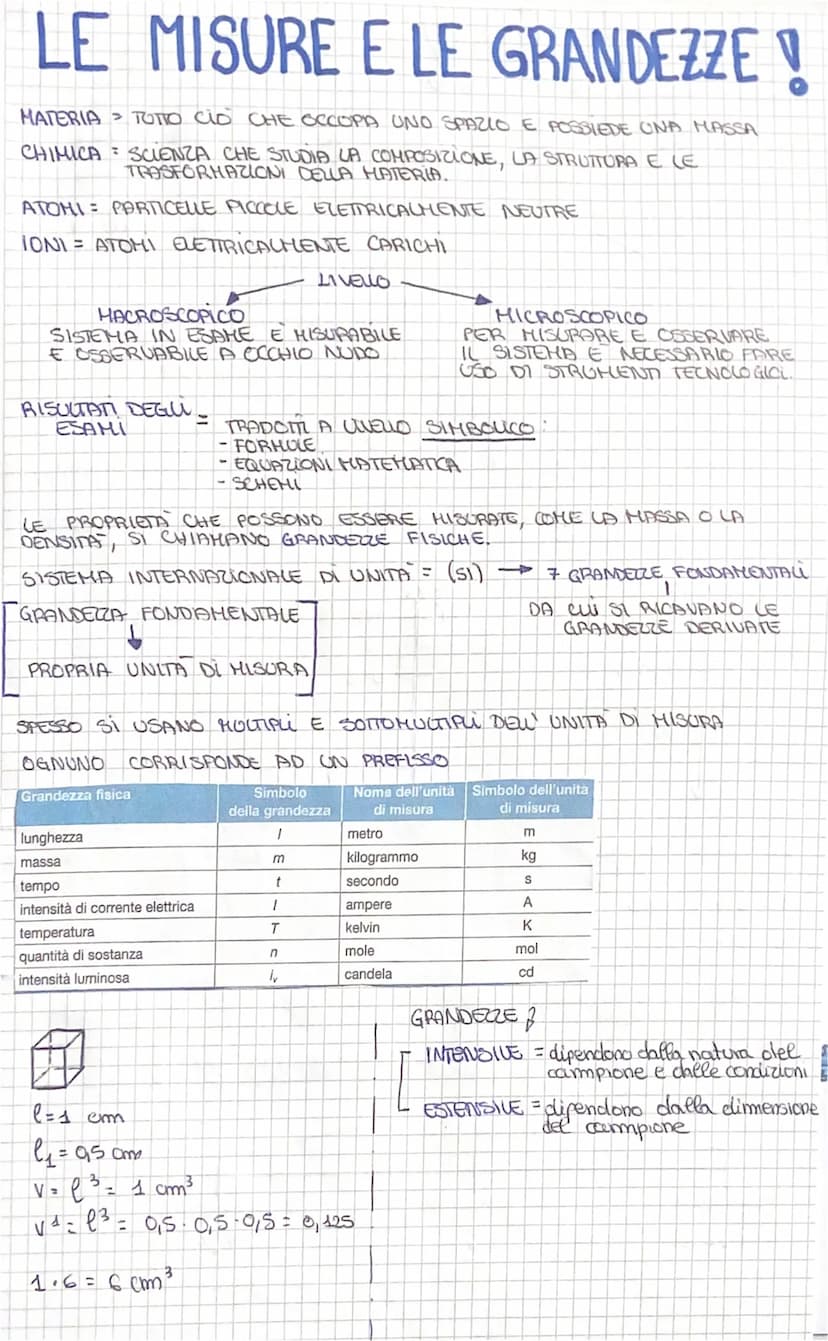 LE MISURE E LE GRANDEZZE !
MATERIA = TUTTO CIÒ CHE OCCUPA UNO SPAZIO E POSSIEDE UNA MASSA
CHIMICA = SCIENZA CHE STUDIA LA COMPOSIZIONE, LA STRUTTURA E LE
TRASFORMAZIONI DELLA MATERIA.
ATOMI = PARTICELLE PICCOLE ELETTRICALMENTE NEUTRE
IONI = ATOMI ELETTRICALMENTE CARICHI
LIVELLO
MACROSCOPICO
SISTEMA IN ESAME E' MISURABILE
E OSSERVABILE A OCCHIO NUDO
MICROSCOPICO
PER MISURARE E OSSERVARE
IL SISTEMA E' NECESSARIO FARE
USO DI STRUMENTI TECNOLOGICI.
RISULTATI DEGLI
ESAMI =
TRADOTTI A LIVELLO SIMBOLICO:
- FORMULE
- EQUAZIONI MATEMATICA
- SCHEMI
LE PROPRIETÀ CHE POSSONO ESSERE MISURATE, COME LA MASSA O LA
DENSITÀ, SI CHIAMANO GRANDEZZE FISICHE.
SISTEMA INTERNAZIONALE DI UNITÀ = (SI) → 7 GRANDEZZE FONDAMENTALI
DA CUI SI RICAVANO LE
GRANDEZZE DERIVATE
GRANDEZZA FONDAMENTALE
↓
PROPRIA UNITÀ DI MISURA
SPESSO SI USANO MULTIPLI E SOTTOMULTIPLI DELL' UNITÀ DI MISURA
OGNUNO CORRISPONDE AD UN PREFISSO
Grandezza fisica Simbolo della grandezza Nome dell'unità di misura Simbolo dell'unità di misura
lunghezza l metro m
massa m kilogrammo kg
tempo t secondo s
intensità di corrente elettrica I ampere A
temperatura T kelvin K
quantità di sostanza n mole mol
intensità luminosa iv candela cd
l=1 cm
l1 = 0,5 cm
V = l³ = 1 cm³
V1 = l³ = 0,5 · 0,5 · 0,5 = 0,125
1·6 = 6 cm³
GRANDEZZE
INTENSIVE = dipendono dalla natura del
campione e dalle condizioni
ESTENSIVE = dipendono dalla dimensione
del campione